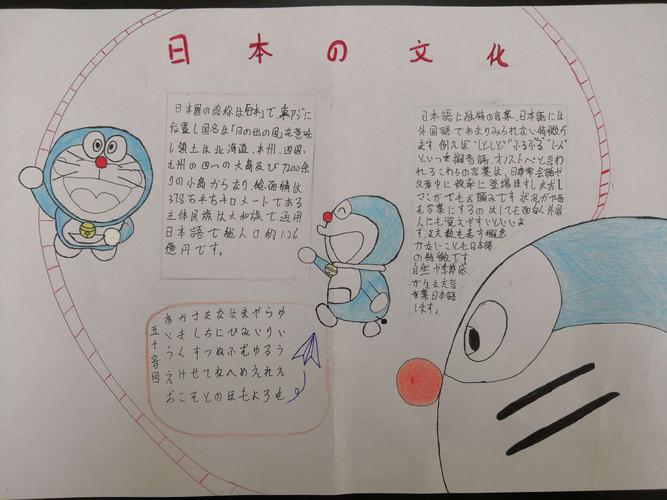 日本の文化
日本国の略称は「日本」で、東アジに
位置し国名は「日の出の国」を意味
し領土は北海道、本州、四国、
九州の四つの大島及び7200余
りの小島からなり、総面積は
378万平方キロメートである
主体民族は大和族で通用
日本語で総人口約1.26
億円です。
日本語に独特の言葉、日本語には
外国語であまりみられない特徴が
ます 例えば
といった擬音語、オノトペと言わ
れるこれらの言葉は、日常会話や
文章中に 登場はすしおし
も言葉にするの はしても面白く外国
人にも覚えやすいといいま
す、また数も多す概念
かないことも日本語
の特徴です
自然や季節感
言
葉日本語
します。
五十音図
あかさたなはまやらゆ
いきしちにひみいりい
うくすつぬふむゆるう
えけせてねへめえれえ
おこそとのほもよろを